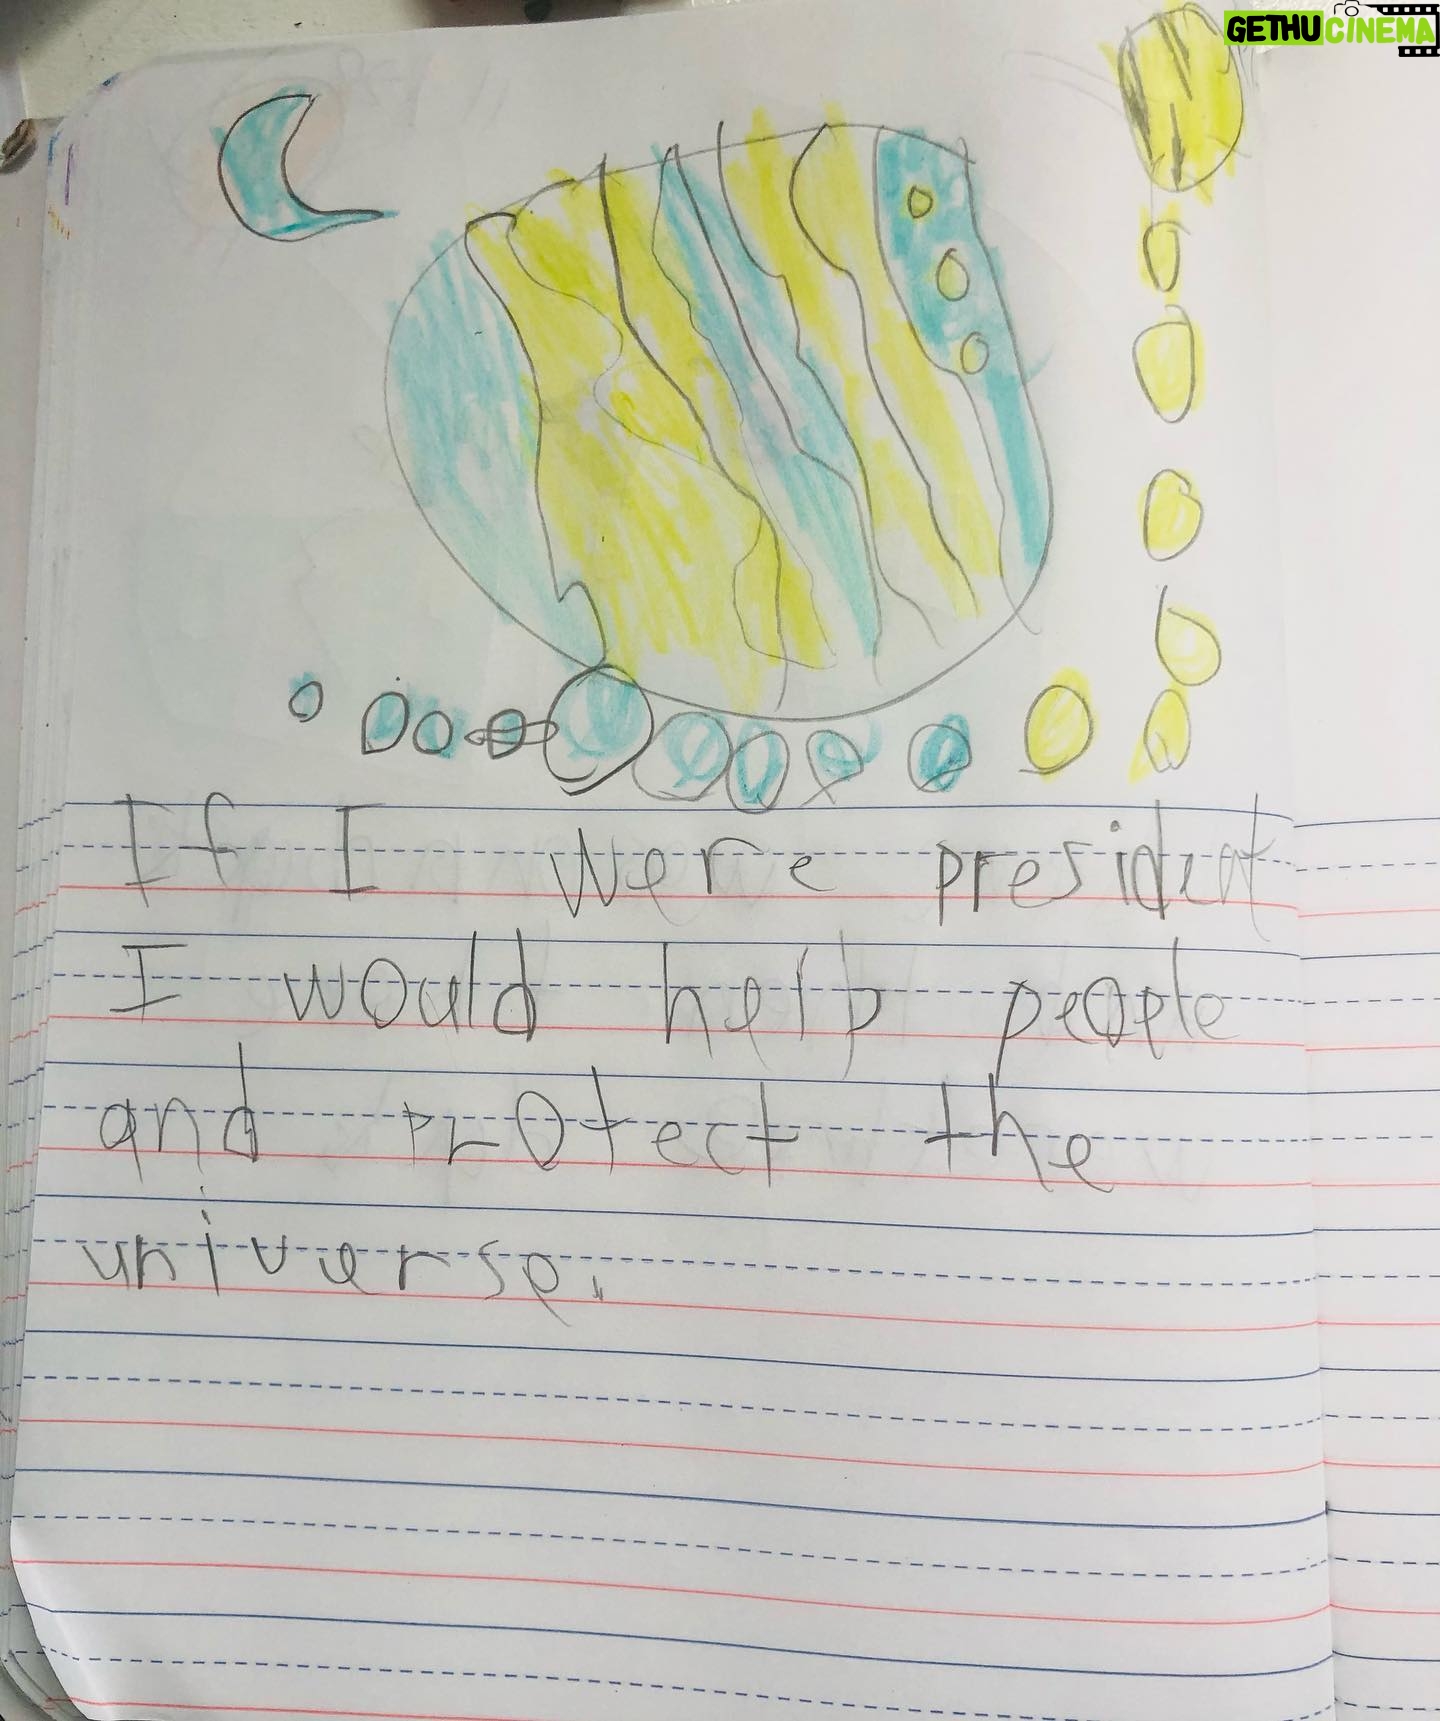 GETHUCINEMA
If I were president
I would help people
and protect the
universe.